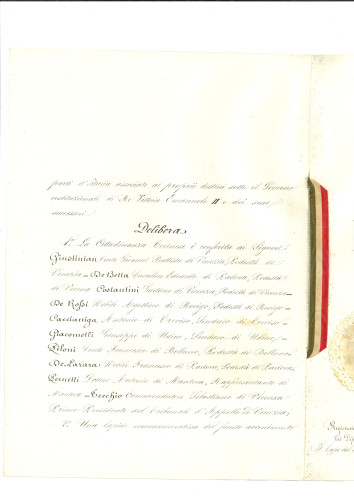 parti d'Italia associate ai proprii destini sotto il Governo
costituzionale di Re Vittorio Emanuele II e dei suoi
successori
Delibera
1.° La Cittadinanza è conferita ai Signori
Giustinian Conte Giovanni Battista di Venezia, Podestà di
Venezia - De Betta Cavaliere Edoardo di Podestà
di Verona Costantini Gaetano di Vicenza, Podestà di Vicenza -
De Rossi Nobile Agostino di Rovigo, Podestà di Rovigo -
Caccianiga Antonio di Treviso, Sindaco di Treviso -
Giacomelli Giuseppe di Udine, Sindaco di Udine,
Piloni Conte Francesco di Belluno, Podestà di Belluno
De Lazara Nobile Francesco di Padova, Podestà di Padova,
Dottor Antonio di Mantova, Rappresentante di
Mantova - Tecchio Commendatore Sebastiano di Vicenza
Primo Presidente del Tribunale d'Appello di Venezia,
2.° Una lapide commemorativa del fausto avvenimento